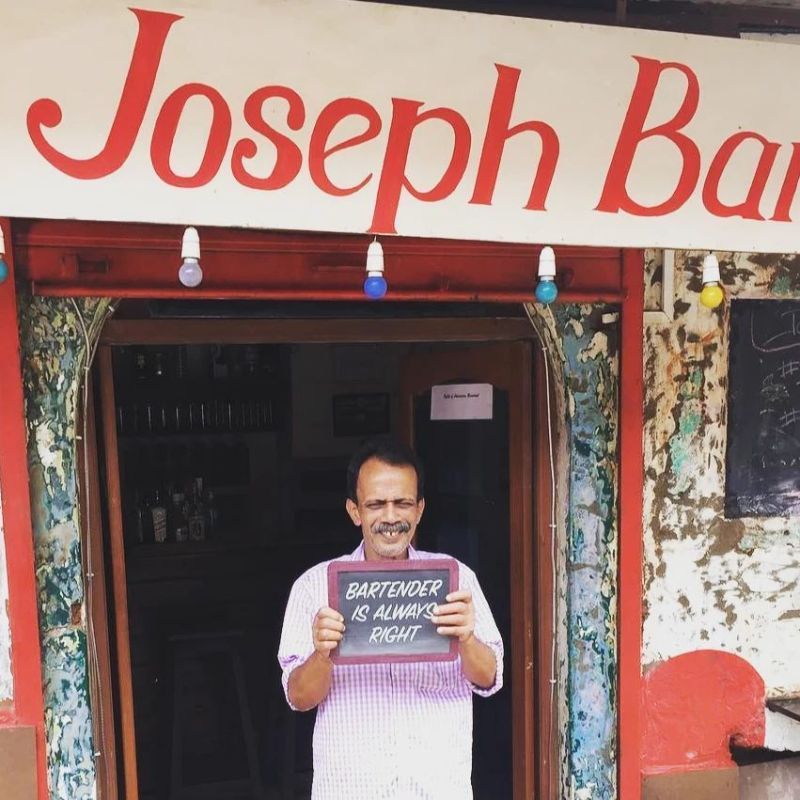 Joseph Bar
BARTENDER
IS ALWAYS
RIGHT